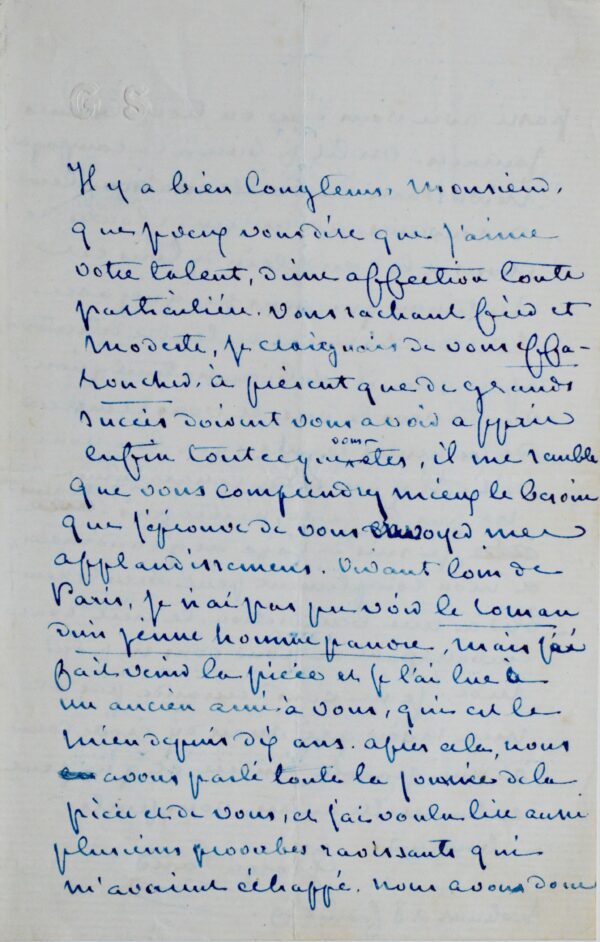 G S
Il y a bien longtems, Monsieur,
que je veux vous dire que j'aime
votre talent, d'une affection toute
particulière. Vous sachant fier et
modeste, je craignais de vous effa-
roucher. à présent que de grands
succès doivent vous avoir appris
enfin tout ce que vous êtes, il me semble
que vous comprendrez mieux le besoin
que j'éprouve de vous envoyer mes
applaudissemens. Vivant loin de
Paris, je n'ai pas pu voir le roman
d'un jeune homme pauvre, mais j'ai
fait venir la pièce et je l'ai lue à
un ancien ami à vous, qui est le
mien depuis dix ans. après cela, nous
avons parlé toute la journée de la
pièce et de vous, et j'ai voulu lire aussi
plusieurs proverbes ravissants qui
m'avaient échappé. nous avons donc